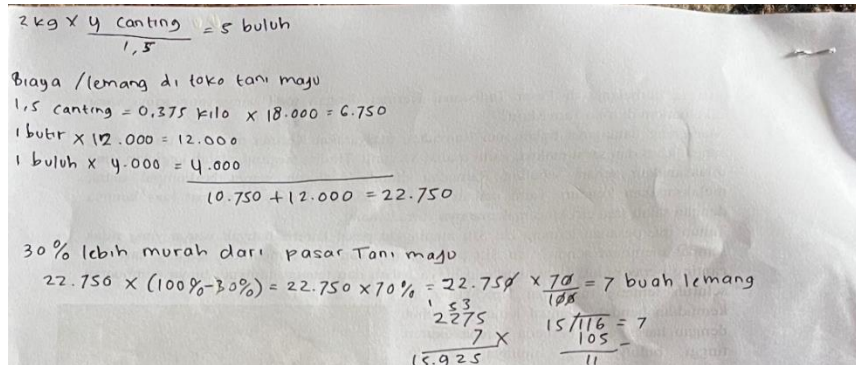 2 kg x y canting = 5 buluh
1,5
Biaya /lemang di toko tani maju
1,5 canting = 0,375 kilo x 18.000 = 6.750
1 butir x 12.000 = 12.000
1 buluh x 4.000 = 4.000
10.750 + 12.000 = 22.750
30% lebih murah dari pasar Tani maju
22.750 x (100%-30%) = 22.750 x 70% = 22.750 x 70 = 7 buah lemang
100
1 53
2275
7 x
15.925
15/116 = 7
105 -
11